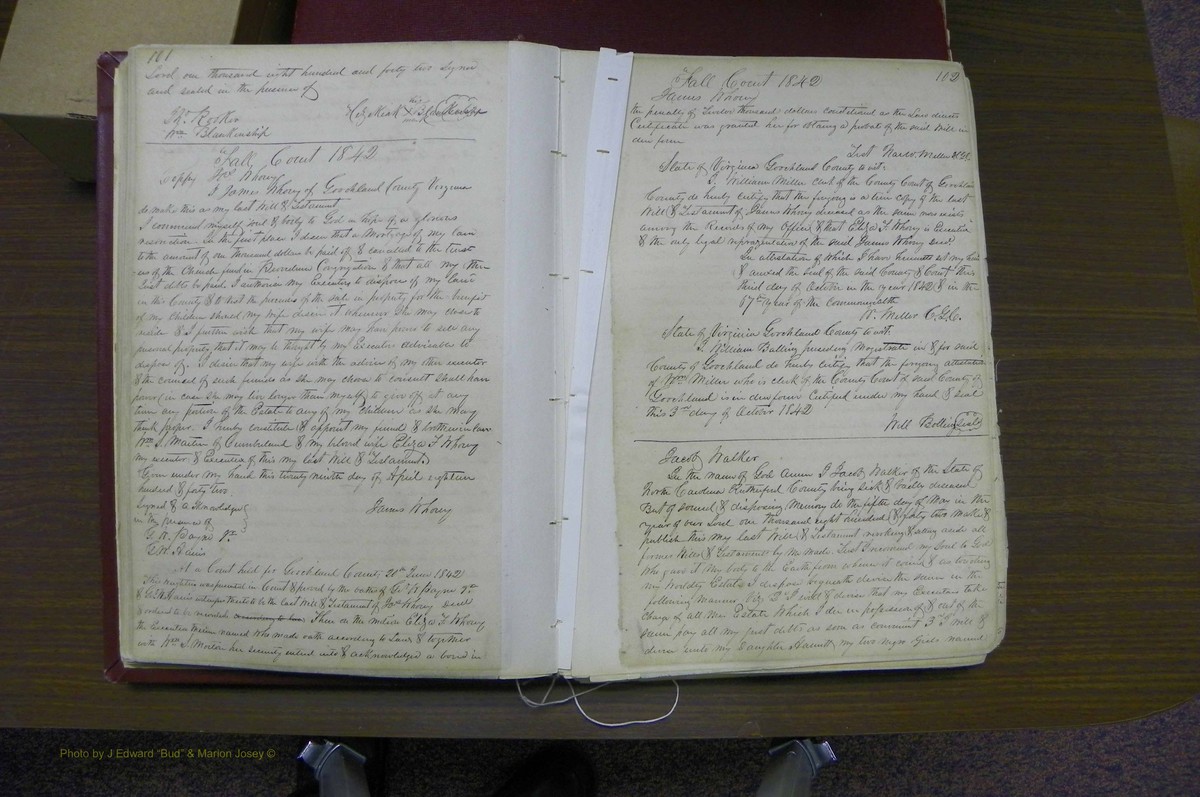 101
Lord, one thousand eight hundred and forty two Signed
and sealed in the presence of
Hezekiah his X Blankenship
Th. Rooker
Wm Blankenship
Fall Court 1842
Copy Jas Whorey
I James Whorey of Goochland County Virginia
do make this as my last Will & Testament
I commend myself soul & body to God in hope of a glorious
resurrection. In the first place I desire that a Mortgage of my land
to the amount of one thousand dollars be paid off & cancelled to the trust
ees of the Church fund in Congregation & that all my other
Just debts be paid. I authorise my Executors to dispose of my land
in this County & to vest the proceeds of the sale in property for the benefit
of my Children should my wife desire it wherever she may choose to
reside & I further wish that my wife may have power to sell any
personal property that it may be thought by my Executor advisable to
dispose of. I desire that my wife with the advice of my other executor
& the counsel of such friends as she may choose to consult shall have
power (in case she may live longer than myself) to give off at any
time any portion of the Estate to any of my children as she may
think proper. I hereby constitute & appoint my friend & brother in law
Wm S. Morton of Cumberland & my beloved wife Eliza F Whorey
my executor & Executrix of this my last Will & Testament.
Given under my hand this twenty ninth day of April eighteen
hundred & forty two
James Whorey
Signed & acknowledged
in the presence of
G. R. Payne Jr.
G. W. Harris
At a Court held for Goochland County 20th June 1842
This writing was presented in Court & proved by the oaths of G. R Payne Jr
& G. W. Harris witnesses thereto to be the last Will & Testament of James Whorey decd
& ordered to be recorded according to law. Then on the motion Eliza F Whorey
the Executrix therein named who made oath according to Law & together
with Wm S. Morton her security entered into & acknowledged a bond in
102
Fall Court 1842
James Whorey
the penalty of Twelve thousand dollars conditioned as the Law directs
Certificate was granted her for obtaining a probat of the said Will in
due form
Test Narco. Miller
State of Virginia Goochland County to wit:
I, William Miller clerk of the County Court of Goochland
County do hereby certify that the foregoing is a true copy of the last
Will & Testament of James Whorey deceased as the same now exists
among the Records of my Office & that Eliza F. Whorey is Executrix
& the only legal representative of the said James Whorey decd.
In attestation of which I have hereunto set my hand
& caused the Seal of the said County & Court this
third day of October in the year 1842 & in the
67th year of the Commonwealth
W. Miller C.G.C.
State of Virginia Goochland County to wit.
I, William Bolling presiding Magistrate in & for said
County of Goochland do hereby certify that the foregoing attestation
of Wm Miller who is clerk of the County Court of said County of
Goochland is in due form Certified under my hand & seal
this 3rd day of October 1842
Will Bolling Seal
Jacob Walker
In the name of God Amen I Jacob Walker of the State of
North Carolina Rutherford County being sick & deceased
But of sound & disposing Memory do the fifth day of May in the
year of our Lord, one thousand eight hundred & forty two Make &
publish this my last Will & Testament revoking & all
former Wills & Testaments by me made. First I recommend my Soul to God
who gave it My body to the Earth from whence it came & as touching
my worldly Estate I dispose bequeath devise the same in the
following Manner, Viz. 2nd I will & devise that my Executors take
charge of all the Estate Which I die in possession of & out of the
same pay all my just debts as soon as convenient 3rd I will &
devise unto my Daughter my two Negro Girls named
Photo by J Edward "Bud" & Marion Josey ©